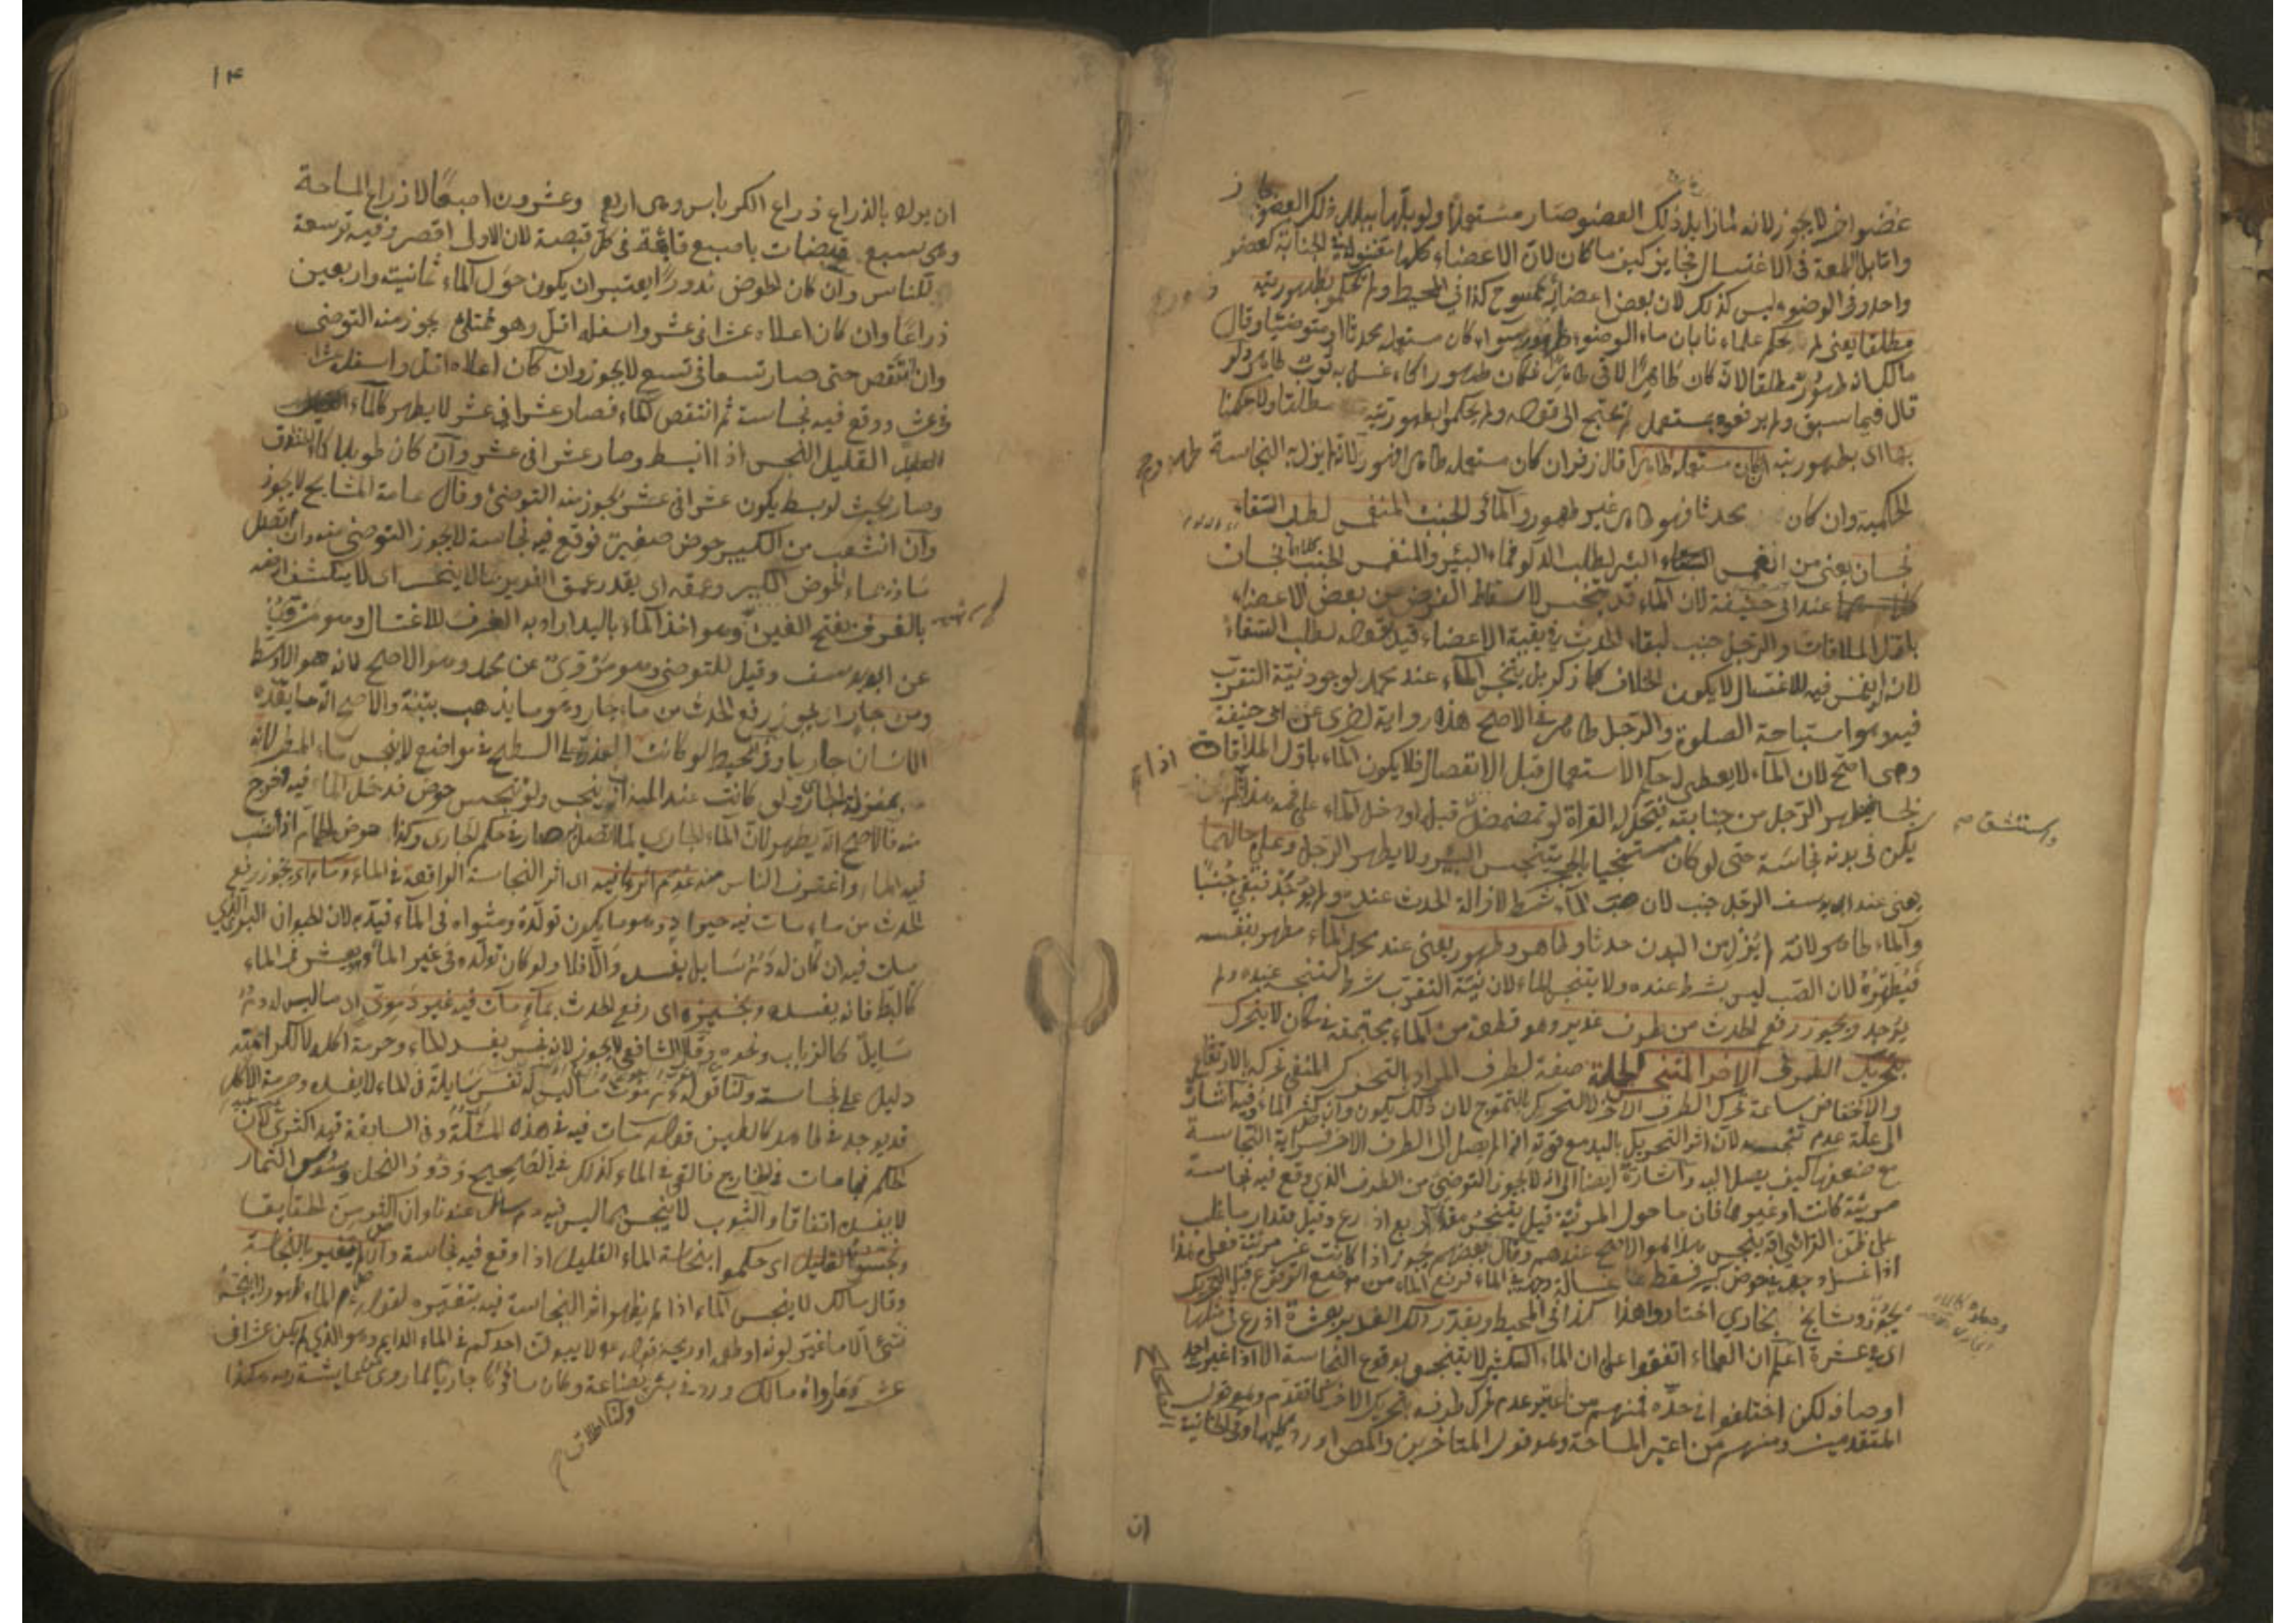 عضوا اخر لا يجوز لانه لما زايل ذلك العضو صار مستعملا ولو بلها ببلل ذلك العضو جاز
واما بل اللمعة فى الاغتسال فجايز كيف ما كان لان الاعضاء كلها فى الجنابة كعضو
واحد وفى الوضوء ليس كذلك لان بعض اعضائه ممسوح كذا فى المحيط ولم يحكموا بطهوريته
مطلقا يعنى لم يحكم علماءنا بان ماء الوضوء طهور سواء كان مستعمله محدثا او متوضئا وقال
مالك انه طهور مطلقا لانه كان طاهرا لاقى طاهرا فكان طهورا كماء غسل به ثوب طاهر
قال فيما سبق ولم يرفعوه بمستعمل لم يحتج الى قوله ولم يحكموا بطهوريته مطلقا ولا حكمنا
بها اى بطهوريته ان كان مستعمله طاهرا قال زفر ان كان مستعمله طاهرا فهو طهور لانه لم يزل به النجاسة
الحكمية وان كان محدثا فهو طاهر غير طهور والماء والجنب المنغمس لطلب السقاء
نجسان يعنى من انغمس البئر لطلب الدلو فماء البئر والمنغمس الجنب كلاهما نجسان
عند ابى حنيفة لان الماء قد تنجس لاسقاط الفرض من بعض الاعضاء
باول الملاقات والرجل جنب لبقاء الحدث فى بقية الاعضاء قيد بقوله لطلب السقاء
لانه لو انغمس فيه للاغتسال لا يكون الخلاف كما ذكر بل ينجس الماء عند محمد لوجود نية التقرب
فيه وهو استباحة الصلوة والرجل طاهر فى الاصح هذه رواية اخرى عن ابى حنيفة
وهى اصح لان الماء لا يعطى له حكم الاستعمال قبل الانفصال فلا يكون الماء باول الملاقات
نجسا فيطهر الرجل من جنابته فيحل له القراة لو تمضمض قبل او دخل الماء على فمه هذا ان لم
واستنشق صح
يكن فى بدنه نجاسة حتى لو كان مستنجيا بالحجر يتنجس البئر ولا يطهر الرجل وعلى حالهما
يعنى عند ابى يوسف الرجل جنب لان صب الماء شرط لازالة الحدث عنده ولم يوجد فبقى جنبا
والماء طاهر لانه لم يزل من البدن حدثا وطاهر وطهور يعنى عند محمد الماء مطهر بنفسه
فيطهره لان الصب ليس بشرط عنده ولا يتنجس الماء لان نية التقرب شرط التنجس عنده ولم
يوجد ويجوز رفع الحدث من طرف غدير وهو قطعة من الماء مجتمعة فى مكان لا يتحرك
بتحريك الطرف الاخر المتنجس الجملة صفة لطرف المراد بالتحرك المنفى تحركه بالارتفاع
والانخفاض ساعة تحرك الطرف الاخر لا التحرك بالتموج لان ذلك يكون وان كثر الماء وفيه اشارة
الى علة عدم تنجسه لان اثر التحريك باليد مع قوته اذا لم يصل الى الطرف الاخر فسراية النجاسة
مع ضعفها كيف يصل اليه واشارة ايضا الى انه لا يجوز التوضى من الطرف الذى وقع فيه نجاسة
مرئية كانت او غيرها فان ما حول المرئية قيل يتنجس مقدار اربع اذرع وقيل مقدار ما غلب
على ظن الرائى انه ينجس هذا هو الاصح عندهم وقال بعضهم يجوز اذا كانت غير مرئية فعلى هذا
اذا غسل وجهه فى حوض كبير فسقط غسالة وجهه فى الماء فرفع الماء من موضع الوقوع قبل التحريك
يجوز ومشايخ بخارى اختاروا هذا كذا فى المحيط ويقدر ذلك الغدير بعشرة اذرع فى مثلها
اى فى عشرة اعلم ان العلماء اتفقوا على ان الماء الكثير لا يتنجس بوقوع النجاسة الا اذا غير احد
اوصافه لكن اختلفوا فى حده فمنهم من اعتبر عدم تحرك طرفه بتحريك الاخر كما تقدم وهو قول
المتقدمين ومنهم من اعتبر المساحة وهو قول المتاخرين والمص اورد كليهما وفى الخانية
ان
۱۴
ان يراد بالذراع ذراع الكرباس وهى اربع وعشرون اصبعا لا ذراع المساحة
وهى سبع قبضات باصبع قايمة فى كل قبضة لان الاول اقصر وفيه توسعة
للناس وان كان الحوض مدورا يعتبر ان يكون حول الماء ثمانية واربعين
ذراعا وان كان اعلاه عشرا فى عشر واسفله اقل وهو ممتلئ يجوز منه التوضى
وان انتقص حتى صار تسعا فى تسع لا يجوز وان كان اعلاه اقل واسفله عشرا
فى عشر ووقع فيه نجاسة ثم انتقص الماء فصار عشرا فى عشر لا يطهر كالماء
القليل النجس اذا انبسط وصار عشرا فى عشر وان كان طويلا كالخندق
وصار بحيث لو بسط يكون عشرا فى عشر يجوز منه التوضئ وقال عامة المشايخ لا يجوز
وان انشعب من الكبير حوض صغير فوقع فيه نجاسة لا يجوز التوضى منه وان اتصل
ماؤه بماء الحوض الكبير وعمقه اى يقدر عمق الغدير بما لا ينحسر اى لا ينكشف ارضه
بالغرف بفتح الغين وهو اخذ الماء باليد اراد به الغرف للاغتسال وهو مروى
عن ابى يوسف وقيل للتوضى وهو مروى عن محمد وهو الاصح لانه هو الاوسط
ومن جار اى يجوز رفع الحدث من ماء جار وهو ما يذهب بتبنة والاصح انه ما يعده
الانسان جاريا وفى المحيط لو كانت العذرة على السطح فى مواضع لا ينجس ماء المطر لانه
بمنزلة الجارى ولو كانت عند الميزاب ينجس ولو تنجس حوض فدخل الماء فيه وخرج
منه فالاصح انه يطهر لان الماء الجارى لما اتصل به صار فى حكم الجارى وكذا حوض الحمام اذا انصب
فيه الماء واغترف الناس منه عدم اثرها فيه اى اثر النجاسة الواقعة فى الماء وماء اى يجوز رفع
الحدث من ماء مات فيه حيوان وهو ما يكون تولده ومثواه فى الماء قيد به لان الحيوان البرى الذى
مات فيه ان كان له دم سايل يفسد والا فلا ولو كان تولده فى غير الماء ويعيش فى الماء
كالبط فانه يفسده ونجيزه اى رفع الحدث بماء مات فيه غير دموى اى ما ليس له دم
سايل كالذباب ونحوه وقال الشافعى لا يجوز لانه نجس يفسد الماء وحرمة اكله لا لكرامته
دليل على نجاسته ولنا قوله موت ما ليس له نفس سايلة فى الماء لا يفسده وحرمة الاكل
قد يوجد فى طاهر كالطين قوله مات فيه فى هذه المسئلة وفى السابقة قيد اكثرى لان
الحكم فيما مات فى الخارج فالقى فى الماء كذلك فى الصحيح ودود النحل وسوس الثمار
لا يفسد اتفاقا والثوب لا ينجس بما ليس فيه دم سائل عندنا وان كثر
ونجسوا القليل اى حكموا بنجاسة الماء القليل اذا وقع فيه نجاسة وان لم يتغير بالنجاسة
وقال مالك لا ينجس الماء اذا لم يظهر اثر النجاسة فيه بتغيره لقوله عم الماء طهور لا ينجسه
شئ الا ما غير لونه او طعمه او ريحه قوله عم لا يبولن احدكم فى الماء الدايم وهو الذى لم يكن عشرا فى
عشر وما رواه مالك ورد فى بئر بضاعة وكان ماؤها جاريا لما روى عن عايشة رضه هكذا
ولنا اطلاق صح